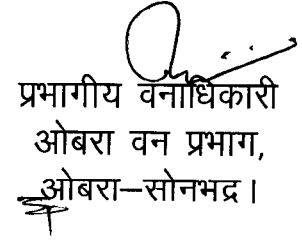 प्रभागीय वनाधिकारी
ओबरा वन प्रभाग,
ओबरा–सोनभद्र।